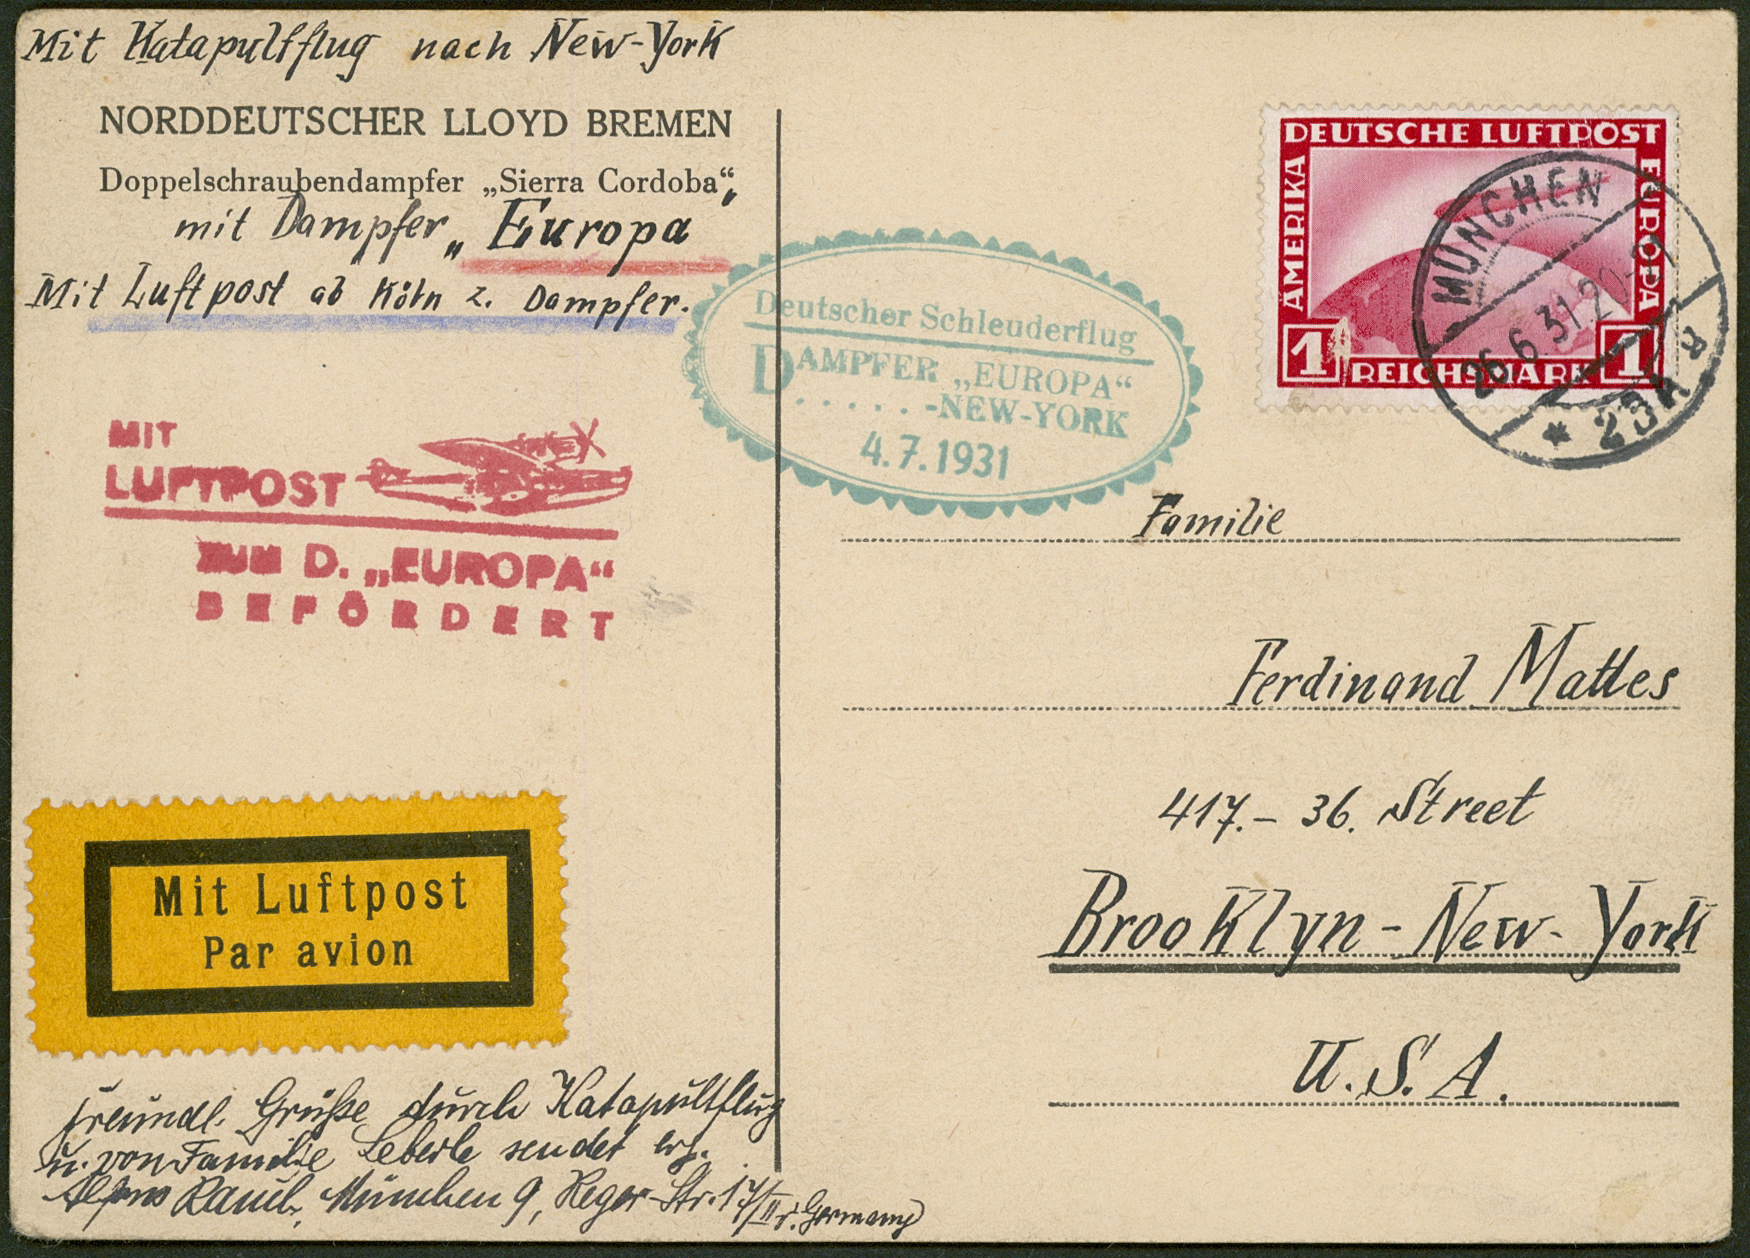 Mit Katapultflug nach New-York
NORDDEUTSCHER LLOYD BREMEN
Doppelschraubendampfer „Sierra Cordoba“,
mit Dampfer „Europa
Mit Luftpost ab Köln z. Dampfer.
DEUTSCHE LUFTPOST
AMERIKA
EUROPA
1 REICHSMARK 1
MÜNCHEN
26.6.31.20-21
* 23H R
Deutscher Schleuderflug
DAMPFER „EUROPA“
......-NEW-YORK
4.7.1931
MIT
LUFTPOST
ZUM D. „EUROPA“
BEFÖRDERT
Familie
Ferdinand Mattes
417.- 36. Street
Brooklyn - New-York
U.S.A.
Mit Luftpost
Par avion
Freundl. Grüße durch Katapultflug
u. von Familie Leberle sendet erg.
Alfons, München 9, Reger-Str. 17/II r. Germany